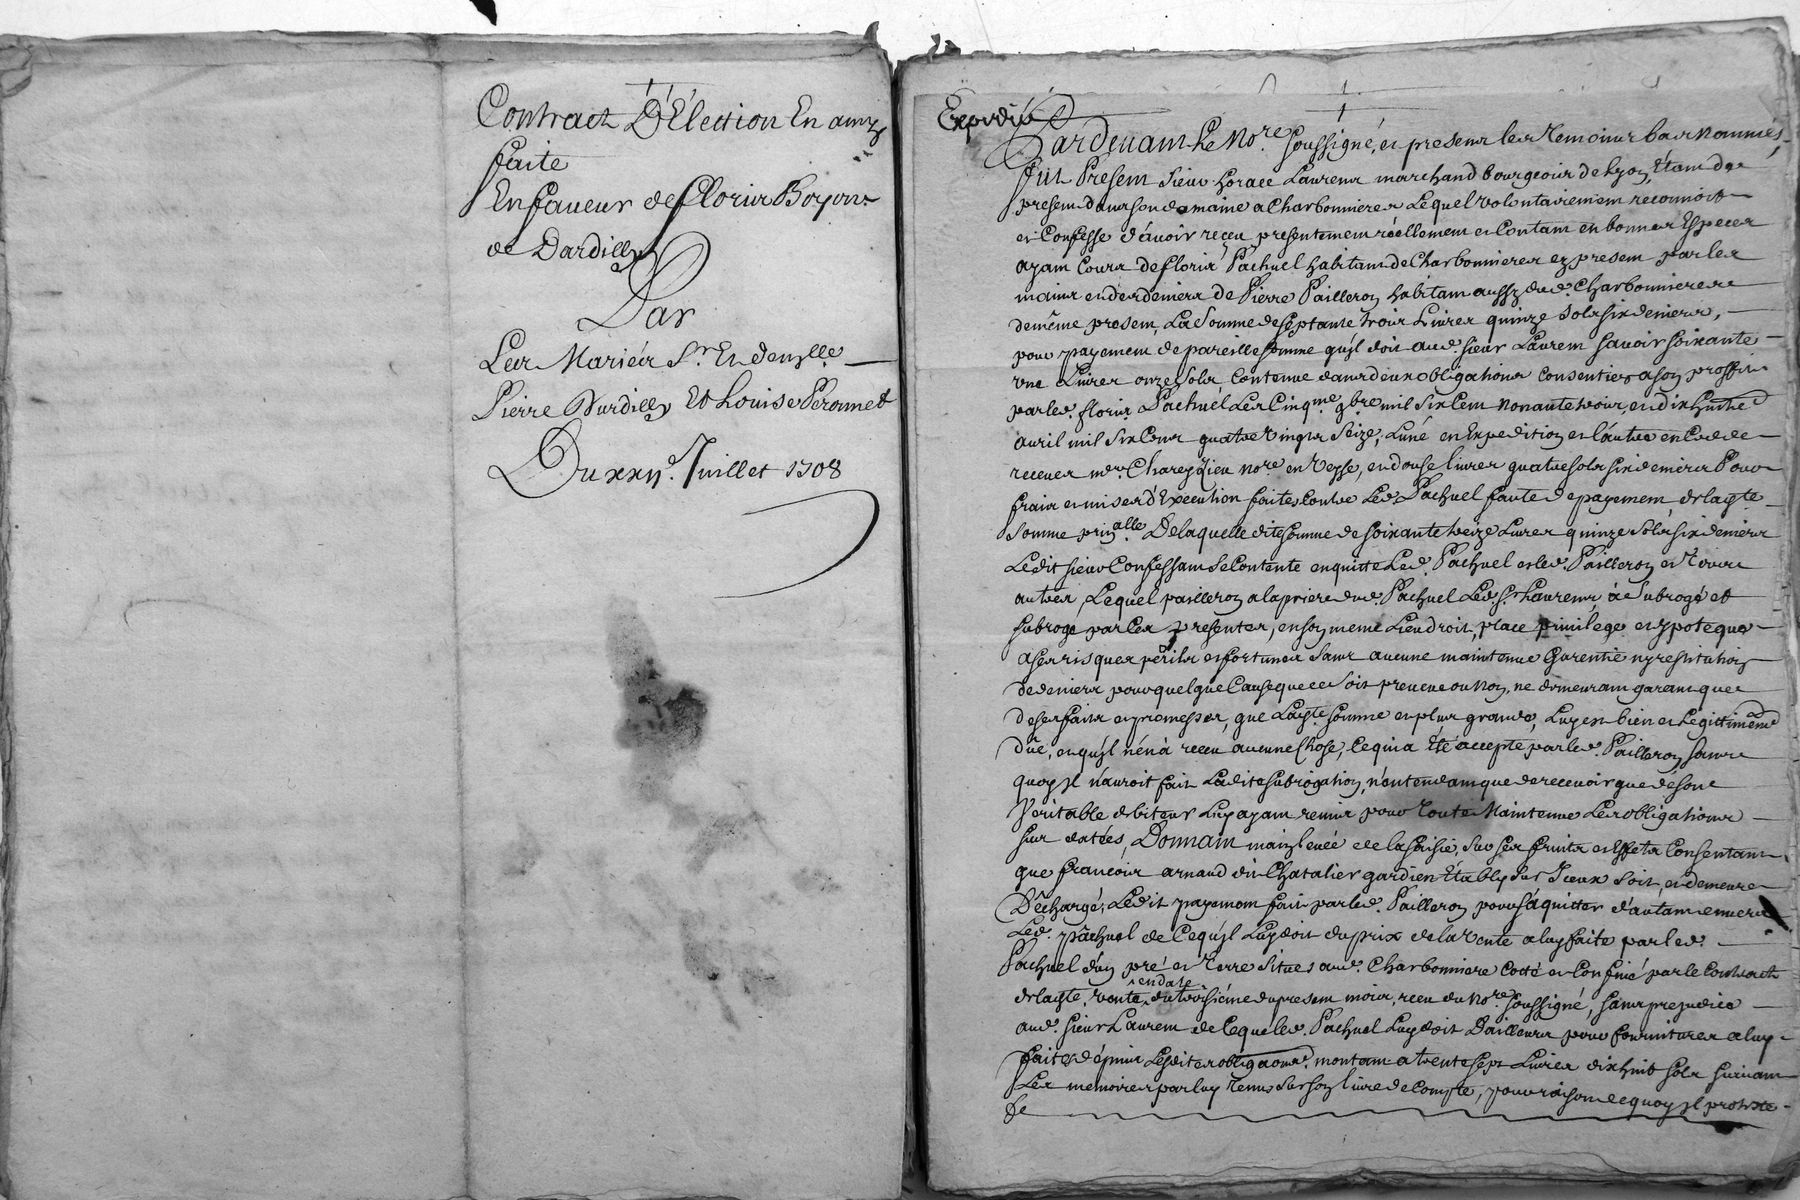 Contract D'Election En amy
faite
En faveur de floris Boyon
de Dardilly
Par
Les Mariés Sr. Et demlle.
Pierre Durdilly Et Louise Peronnet
Du xxije. Juillet 1708
Expedié
Pardevant Le Nore. soussigné, et presens les Temoins bas nommés,
fut Present Sieur horace Laurens marchand bourgeois de Lyon, Etant de
present dans son domaine a Charbonnieres Lequel volontairement reconnoit
et Confesse d'avoir reçeu presentement réellement et Contant en bonnes Especes
ayant Cours de floris Pachuel habitant de Charbonnieres cy present par les
mains et des deniers de Pierre Pailleron habitant aussy dud. Charbonnieres
de même present, La Somme de septante trois Livres quinze sols six deniers,
pour payement de pareille somme qu'il doit aud. sieur Laurens savoir soixante
une Livres onze sols, Contenue dans deux obligations consenties a son proffit
par led. floris Pachuel Les Cinqme. 9bre mil six Cent nonante trois, et dix huit
avril mil six Cens quatre vingts seize, L'une en Expedition et l'autre en
receues mes. nore. en, et douse livres quatre sols six deniers Pour
frais et mises d'Execution faites contre Led. Pachuel faute de payement de lad.
Somme prinalle. De laquelle dite somme de soixante treize Livres quinze sols six deniers
Ledit sieur Confessant se Contente en quitte Led. Pachuel et led. Pailleron et Tous
autres, Lequel pailleron a la priere dud. Pachuel Led. sr. Laurens, a subrogé et
subroge par Ces presentes, en son meme Lieu droit, place privilege et ypoteque
a ses risques perils et fortunes sans aucune maintenue Garentie ny restitution
de deniers pour quelque Cause que ce soit preveue ou non, ne demeurant garant que
de ses faits et promesses, que Lad. somme et plus grande, Luy est bien et Legittimemt
düe, et qu'il n'en à receu aucune Chose, Ce qui a Eté accepté par led. Pailleron sans
quoy il n'auroit fait Ladite subrogation, n'entendant que de recevoir que de son
Veritable debiteur Luy ayant remis pour Toute Maintenue Les obligations
sus datées, Donnant mainlevée de la saisie, sur ses fruits et Effets Consentant
que francois arnaud dit Chatalier gardien Etably sur Iceux soit, et demeure
Déchargé; Ledit payement fait par led. Pailleron pour s'aquitter d'autant envers
Led. pachuel de Ce qu'il Luy doit du prix de la vente a luy faite par led.
Pachuel d'un pré et Terre situés aud. Charbonniere Coté et Confiné par le Contract
de lad. vente en date du troisiéme du present mois, receu du Nore. soussigné, sans prejudice
aud. sieur Laurens de Ce que led. Pachuel Luy doit Dailleurs pour fournitures a luy
faites dépuis Lesdites obligaons. montant a trente sept Livres dix huit sols suivant
Les memoires par luy Tenus sur son livre de Compte, pour raison de quoy il proteste
de